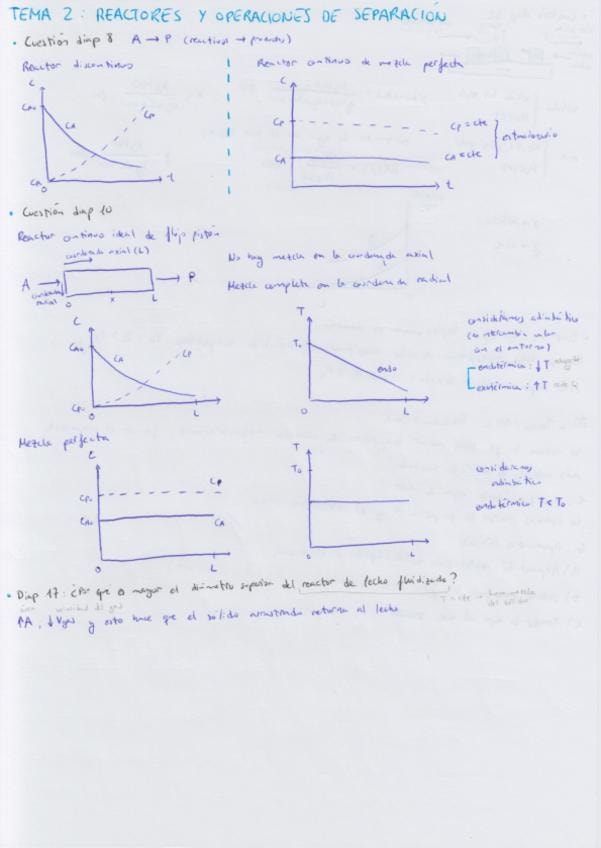 TEMA 2: REACTORES Y OPERACIONES DE SEPARACIÓN
• Cuestión diap 8 A → P (reactivos → productos)
Reactor discontinuo
C
CAo
CA
CP
CPo
0
t
Reactor continuo de mezcla perfecta
C
CP
CA
CP = cte
CA = cte
estacionario
t
• Cuestión diap 10
Reactor continuo ideal de flujo pistón
coordenada axial (L)
A → → P
coordenada radial
0 x L
No hay mezcla en la coordenada axial
Mezcla completa en la coordenada radial
C
CAo
CA
CP
CPo
0
L
T
To
endo
0
L
consideramos adiabático
(no intercambia calor
con el entorno)
endotérmica: ↓T
exotérmica: ↑T
Mezcla perfecta
C
CPo
CP
CAo
CA
L
T
To
0
L
consideramos
adiabático
endotérmico T < To
• Diap 17: ¿Por qué es mayor el diámetro superior del reactor de lecho fluidizado?
área velocidad del gas
↑A, ↓Vgas y esto hace que el sólido arrastrado retorne al lecho